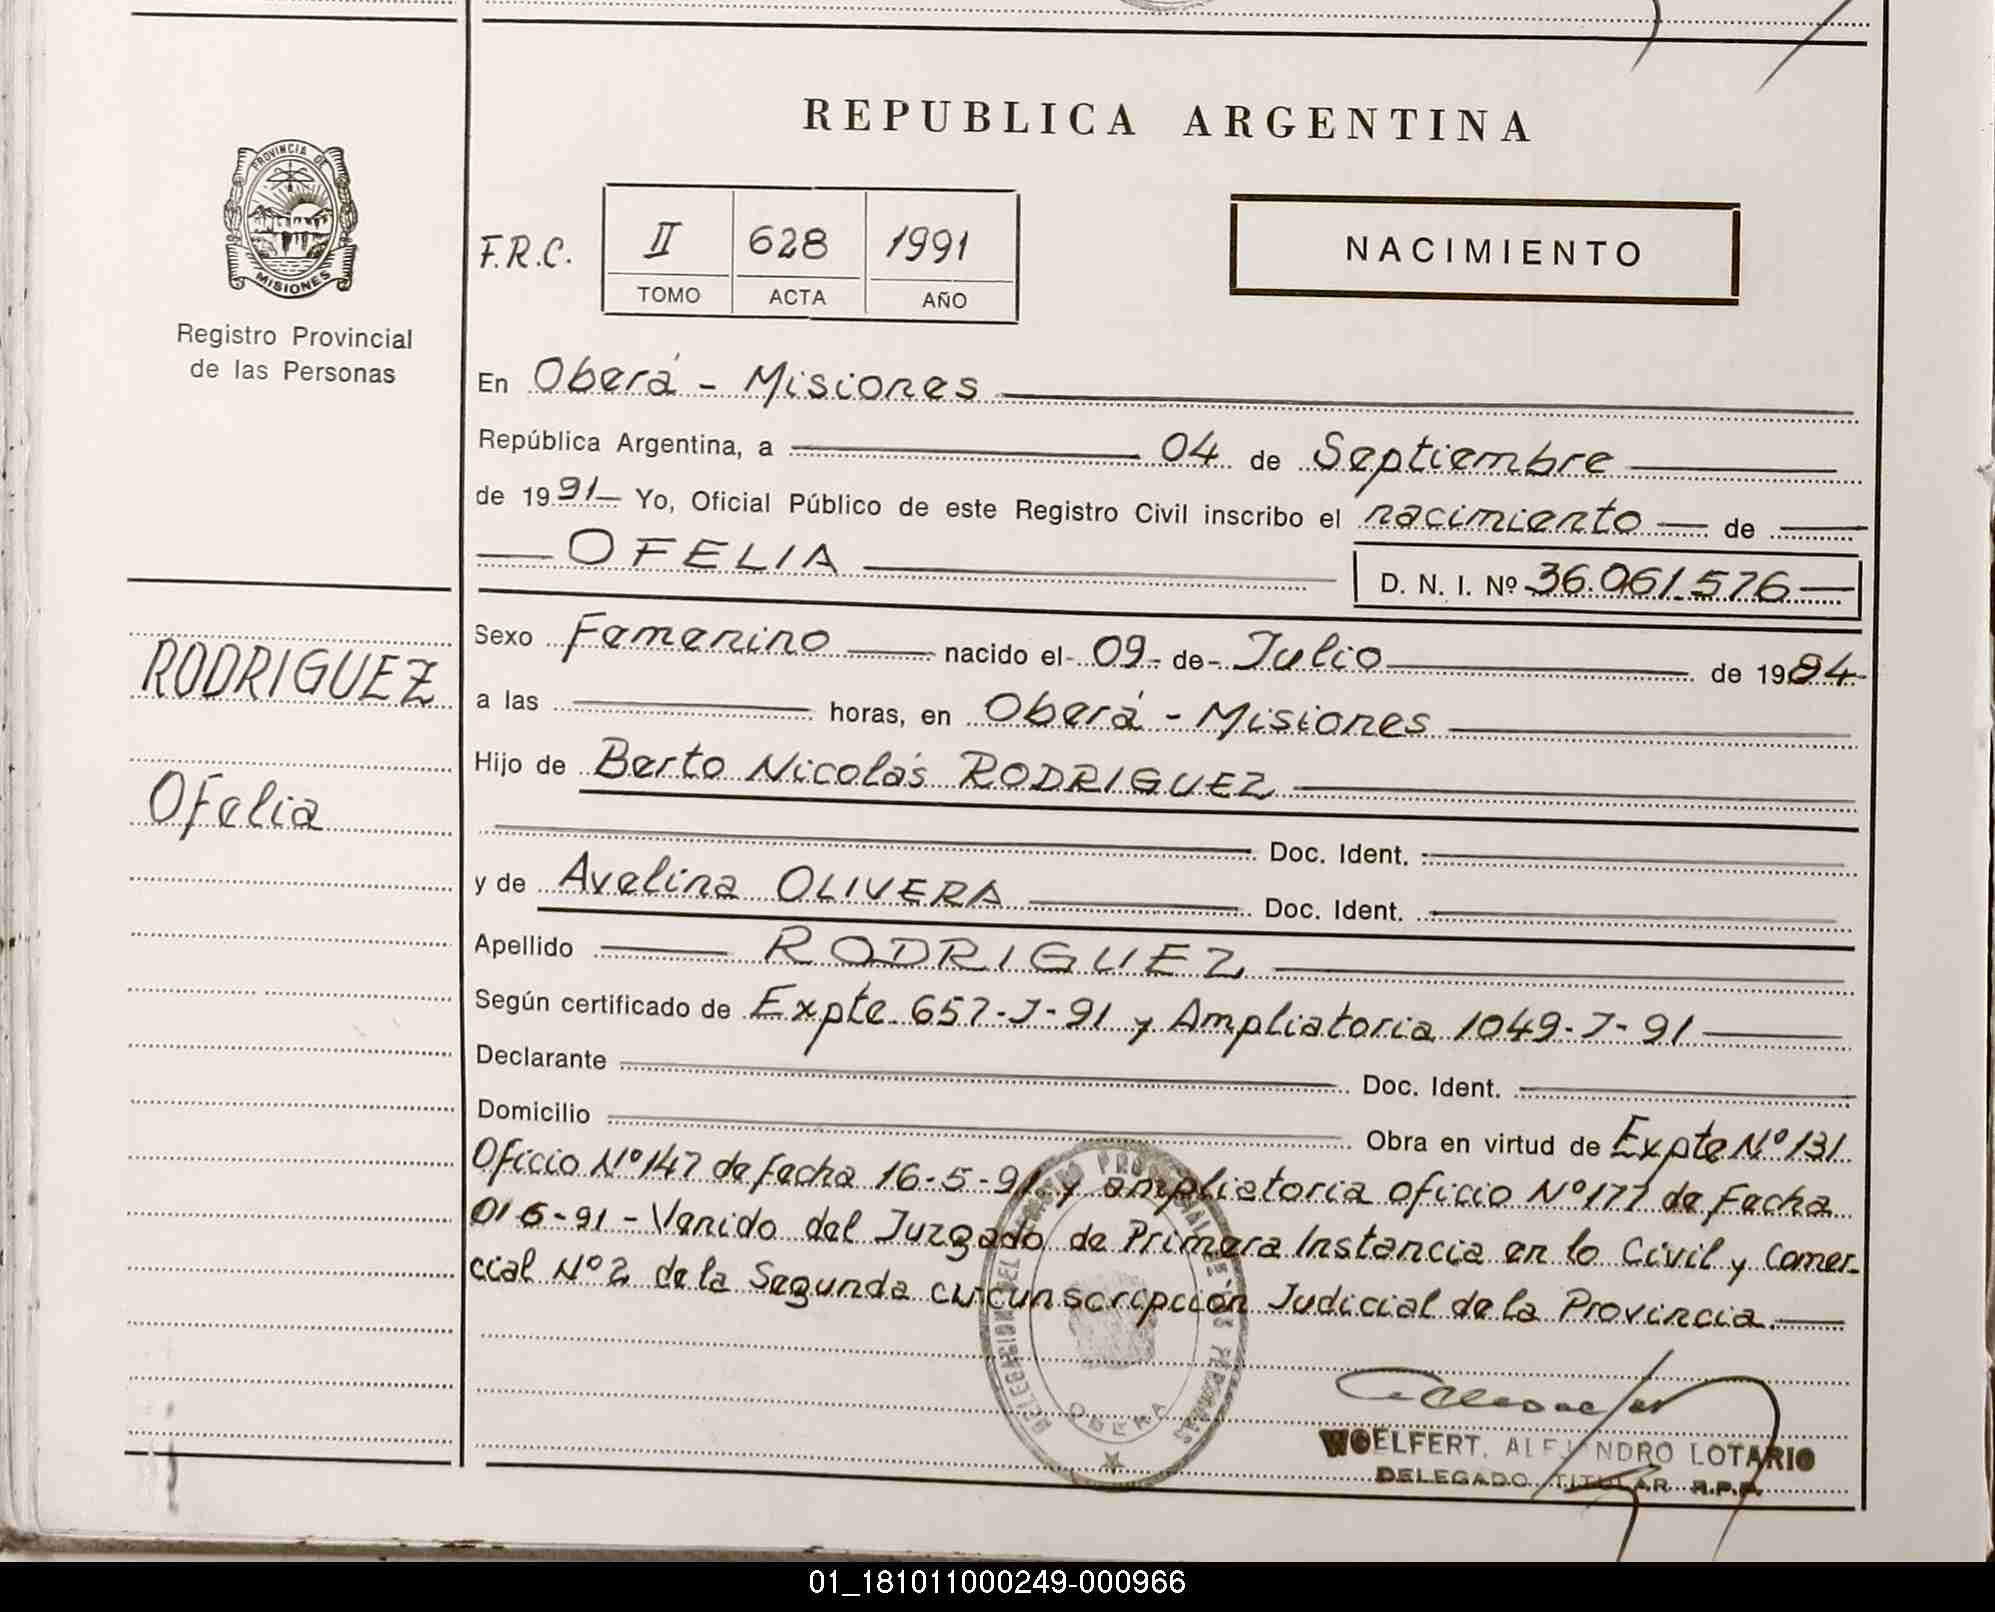 REPUBLICA ARGENTINA
PROVINCIA DE
MISIONES
Registro Provincial
de las Personas
F.R.C. II 628 1991
TOMO ACTA AÑO
NACIMIENTO
En Oberá - Misiones
República Argentina, a 04 de Septiembre
de 1991 Yo, Oficial Público de este Registro Civil inscribo el nacimiento de
OFELIA D. N. I. Nº 36.061.576
RODRIGUEZ
Ofelia
Sexo Femenino nacido el 09 de Julio de 1984
a las horas, en Oberá - Misiones
Hijo de Berto Nicolás RODRIGUEZ
Doc. Ident.
y de Avelina OLIVERA Doc. Ident.
Apellido RODRIGUEZ
Según certificado de Expte 657-J-91 y Ampliatoria 1049-J-91
Declarante Doc. Ident.
Domicilio Obra en virtud de Expte Nº 131
Oficio Nº 147 de fecha 16-5-91 y ampliatoria oficio Nº 177 de Fecha
01 6-91 - Venido del Juzgado de Primera Instancia en lo Civil y Comer-
cial Nº 2 de la Segunda circunscripción Judicial de la Provincia.
OBERA
WOELFERT, ALEJANDRO LOTARIO
DELEGADO TITULAR R.P.P.
01_181011000249-000966